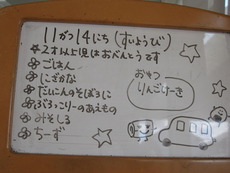 11がつ14にち(すいようび)
☆2才以上児はおべんとうです
ごはん
にざかな
だいこんのそぼろに
ぶろっこりーのあえもの
みそしる
ちーず
おやつ
りんごけーき